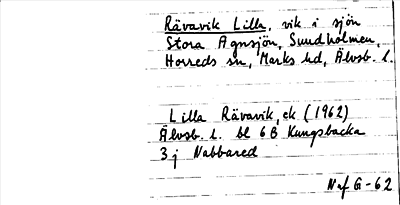 Rävavik Lilla, vik i sjön
Stora Agnsjön, Sundholmen,
Horreds sn, Marks hd, Älvsb. l.
Lilla Rävavik, ek (1962)
Älvsb. l. bl 6B Kungsbacka
3j Nabbared
Naf G-62